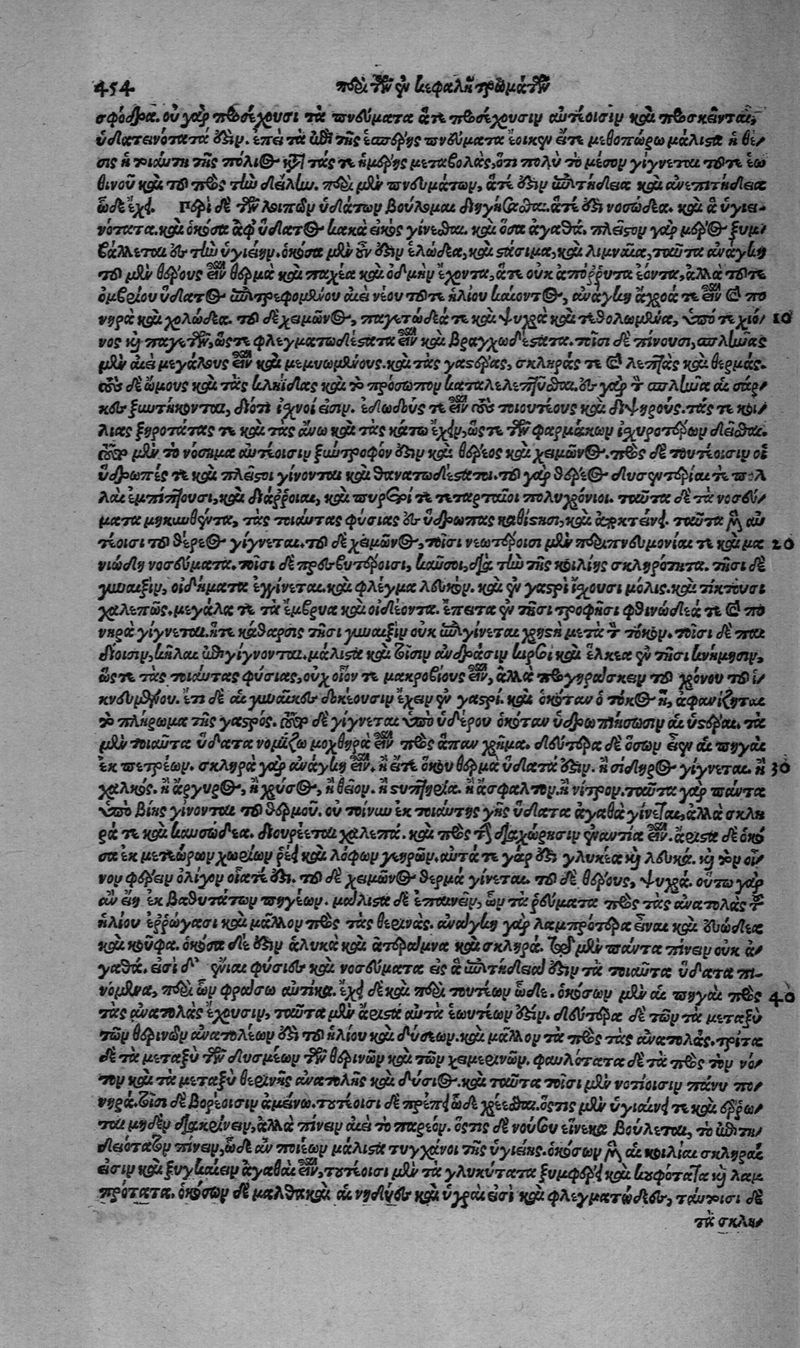 454 περὶ τῶν ἐν κεφαλῇ τρωμάτων
σφόδρα. οὐ γὰρ προσέχουσι τὰ πνεύματα ἅτε προσέχουσιν αὐτέοισιν καὶ προσκέονται,
ὑδατεινότατά ἐστιν. ἐπεὶ τὰ ἀπὸ τῆς ἑσπέρης πνεύματα ἔοικεν ἔτι μεθοπώρῳ μάλιστα ἡ θέ-
σις ἡ τοιαύτη τῆς πόλιος κατὰ τάς τε ἡμέρης μεταβολὰς, ὅτι πολὺ τὸ μέσον γίγνεται τοῦ τε ἑω
θινοῦ καὶ τοῦ πρὸς τὴν δείλην. περὶ μὲν πνευμάτων, ἅτε ἐστιν ἐπιτήδεια καὶ ἀνεπιτήδεια
ὧδε ἔχει. Περὶ δὲ τῶν λοιπῶν ὑδάτων βούλομαι διηγήσασθαι. ἅτε ἐστι νοσώδεα. καὶ ἃ ὑγιει-
νότατα. καὶ ὁκόσα ἀφ' ὕδατος κακὰ εἰκὸς γίνεσθαι. καὶ ὅσα ἀγαθά. πλεῖστον γὰρ μέρος ξυμ-
βάλλεται ἐς τὴν ὑγιείην. ὁκόσα μὲν οὖν ἐστιν ἑλώδεα, καὶ στάσιμα, καὶ λιμναῖα, ταῦτα ἀνάγκη
τοῦ μὲν θέρους εἶναι θερμὰ καὶ παχέα καὶ ὀδμὴν ἔχοντα, ἅτε οὐκ ἀπόρρυτα ἐόντα, ἀλλὰ τοῦ τε
ὀμβρίου ὕδατος ἐπιτρεφομένου αἰεὶ νέου τοῦ τε ἡλίου καίοντος, ἀνάγκη ἄχροά τε εἶναι καὶ πο
νηρὰ καὶ χολώδεα. τοῦ δὲ χειμῶνος, παγετώδεά τε καὶ ψυχρὰ καὶ τεθολωμένα, ὑπό τε χιό- 10
νος καὶ παγετῶν, ὥστε φλεγματωδέστατα εἶναι καὶ βραγχωδέστατα. τοῖσι δὲ πίνουσι, σπλῆνας
μὲν αἰεὶ μεγάλους εἶναι καὶ μεμυωμένους. καὶ τὰς γαστέρας, σκληράς τε καὶ λεπτὰς καὶ θερμάς.
τοὺς δὲ ὤμους καὶ τὰς κληῖδας καὶ τὸ πρόσωπον καταλελεπτύσθαι. ἐς γὰρ τ̀ σπλῆνα αἱ σάρ-
κες ξυντήκονται, διότι ἰχνοί εἰσιν. ἐδωδούς τε εἶναι τοὺς τοιουτέους καὶ διψηρούς. τάς τε κοι-
λίας ξηροτάτας τε καὶ τὰς ἄνω καὶ τὰς κάτω ἔχειν, ὥστε τῶν φαρμάκων ἰσχυροτέρων δεῖσθαι.
τοῦτο μὲν τὸ νόσημα αὐτέοισιν ξύντροφόν ἐστιν καὶ θέρεος καὶ χειμῶνος. πρὸς δὲ τουτέοισιν οἱ
ὕδρωπές τε καὶ πλεῖστοι γίνονται καὶ θανατωδέστατοι. τοῦ γὰρ θέρεος δυσεντερίαι τε πολ
λαὶ ἐμπίπτουσι, καὶ διάρροιαι, καὶ πυρετοί τε τεταρταῖοι πολυχρόνιοι. ταῦτα δὲ τὰ νοσεύ-
ματα μηκυνθέντα, τὰς τοιαύτας φύσιας ἐς ὕδρωπας καθίστησι, καὶ ἀποκτείνει. ταῦτα μὲν αὐ
τέοισι τοῦ θέρεος γίγνεται. τοῦ δὲ χειμῶνος, τοῖσι νεωτέροισι μὲν περιπνευμονίαι τε καὶ μα 20
νιώδη νοσεύματα. τοῖσι δὲ πρεσβυτέροισι, καῦσοι, διὰ τὴν τῆς κοιλίης σκληρότητα. τῇσι δὲ
γυναιξὶν, οἰδήματα ἐγγίνεται. καὶ φλέγμα λευκόν. καὶ ἐν γαστρὶ ἴσχουσι μόλις. καὶ τίκτουσι
χαλεπῶς. μεγάλα τε τὰ ἔμβρυα καὶ οἰδέοντα. ἔπειτα ἐν τῇσι τροφῇσι φθινώδεά τε καὶ πο
νηρὰ γίγνεται. ἥτε κάθαρσις τῇσι γυναιξὶν οὐκ ἐπιγίνεται χρηστὴ μετὰ τ̀ τόκον. τοῖσι δὲ παι
δίοισιν, κῆλαι ἐπιγίγνονται. μάλιστα καὶ τοῖσιν ἀνδράσιν κιρσοὶ καὶ ἕλκεα ἐν τῇσι κνήμησιν,
ὥστε τὰς τοιαύτας φύσιας, οὐχ οἷόν τε μακροβίους εἶναι, ἀλλὰ προγηράσκειν τοῦ χρόνου τοῦ ἱ-
κνευμένου. ἔτι δὲ αἱ γυναῖκες δοκέουσιν ἔχειν ἐν γαστρί. καὶ ὁκόταν ὁ τόκος ᾖ, ἀφανίζεται
τὸ πλήρωμα τῆς γαστρός. τοῦτο δὲ γίγνεται ὑπὸ ὑδέρου ὁκόταν ὑδρωπιήσωσιν αἱ ὑστέραι. τὰ
μὲν τοιαῦτα ὕδατα νομίζω μοχθηρὰ εἶναι πρὸς ἅπαν χρῆμα. δεύτερα δὲ ὅσων εἶεν αἱ πηγαὶ
ἐκ πετρέων. σκληρὰ γὰρ ἀνάγκη εἶναι. ἢ ἔτι ὁκόυ θερμὰ ὕδατά ἐστιν. ἢ σίδηρος γίγνεται. ἢ 30
χαλκός. ἢ ἄργυρος, ἢ χύσος, ἢ θεῖον. ἢ στυπτηρία. ἢ ἄσφαλτον. ἢ νίτρον. ταῦτα γὰρ πάντα
ὑπὸ βίης γίνονται τοῦ θερμοῦ. οὐ τοίνυν ἐκ τοιαύτης γῆς ὕδατα ἀγαθὰ γίνεται, ἀλλὰ σκλη
ρά τε καὶ καυσώδεα. διουρέεται χαλεπά. καὶ πρὸς τὴν διαχώρησιν ἐναντία εἶναι. ἄριστα δὲ ὁκό
σα ἐκ μετεώρων χωρίων ῥέει καὶ λόφων γεηρῶν. αὐτά τε γάρ ἐστι γλυκέα καὶ λευκά. καὶ τὸν οἶ-
νον φέρειν ὀλίγον οἷά τέ ἐστι. τοῦ δὲ χειμῶνος θερμὰ γίνεται. τοῦ δὲ θέρους, ψυχρά. οὕτω γὰρ
ἂν εἴη ἐκ βαθυτάτων πηγέων. μάλιστα δὲ ἐπαινέειν, ὧν τὰ ῥεύματα πρὸς τὰς ἀνατολὰς τ̀
ἡλίου ἐρρώγασι καὶ μᾶλλον πρὸς τὰς θερινάς. ἀνάγκη γὰρ λαμπρότερα εἶναι καὶ εὐώδεα
καὶ κοῦφα. ὁκόσα δέ ἐστιν ἁλυκὰ καὶ ἀτέραμνα καὶ σκληρά. ταῦτα μὲν πάντα πίνειν οὐκ ἀ-
γαθά. εἰσὶ δ' ἔνιαι φύσιες καὶ νοσεύματα ἐς ἃ ἐπιτήδειά ἐστιν τὰ τοιαῦτα ὕδατα πι-
νόμενα, περὶ ὧν φράσω αὐτίκα. ἔχει δὲ καὶ περὶ τουτέων ὧδε. ὁκόσων μὲν αἱ πηγαὶ πρὸς 40
τὰς ἀνατολὰς ἔχουσιν, ταῦτα μὲν ἄριστα αὐτὰ ἑωυτέων ἐστίν. δεύτερα δὲ τῶν τὰ μεταξὺ
τῶν θερινῶν ἀνατολέων ἐστὶ τοῦ ἡλίου καὶ δύσεων. καὶ μᾶλλον τὰ πρὸς τὰς ἀνατολάς. τρίτα
δὲ τὰ μεταξὺ τῶν δυσμέων τῶν θερινῶν καὶ τῶν χειμερινῶν. φαυλότατα δὲ τὰ πρὸς τὸν νό-
τον καὶ τὰ μεταξὺ θερινῆς ἀνατολῆς καὶ δύσιος. καὶ ταῦτα τοῖσι μὲν νοτίοισιν πάνυ πο-
νηρά. τοῖσι δὲ βορείοισιν ἀμείνω. τουτέοισι δὲ πρέπει ὧδε χρέεσθαι. ὅστις μὲν ὑγιαίνει τε καὶ ἔρρω-
ται μηδὲν διακρίνειν, ἀλλὰ πίνειν αἰεὶ τὸ παρεόν. ὅστις δὲ νούσου εἵνεκα βούλεται, τὸ ἐπιτη-
δειότατον πίνειν, ὧδε ἂν ποιέων μάλιστα τυγχάνοι τῆς ὑγιείης. ὁκόσων μὲν αἱ κοιλίαι σκληραί
εἰσιν καὶ ξυγκαίειν ἀγαθαὶ εἶναι, τουτέοισι μὲν τὰ γλυκύτατα ξυμφέρει καὶ κουφότατα καὶ λαμ
πρότατα. ὁκόσων δὲ μαλθακαὶ αἱ νηδύες καὶ ὑγραί εἰσι καὶ φλεγματώδεες, τουτέοισι δὲ
τὰ σκλη-